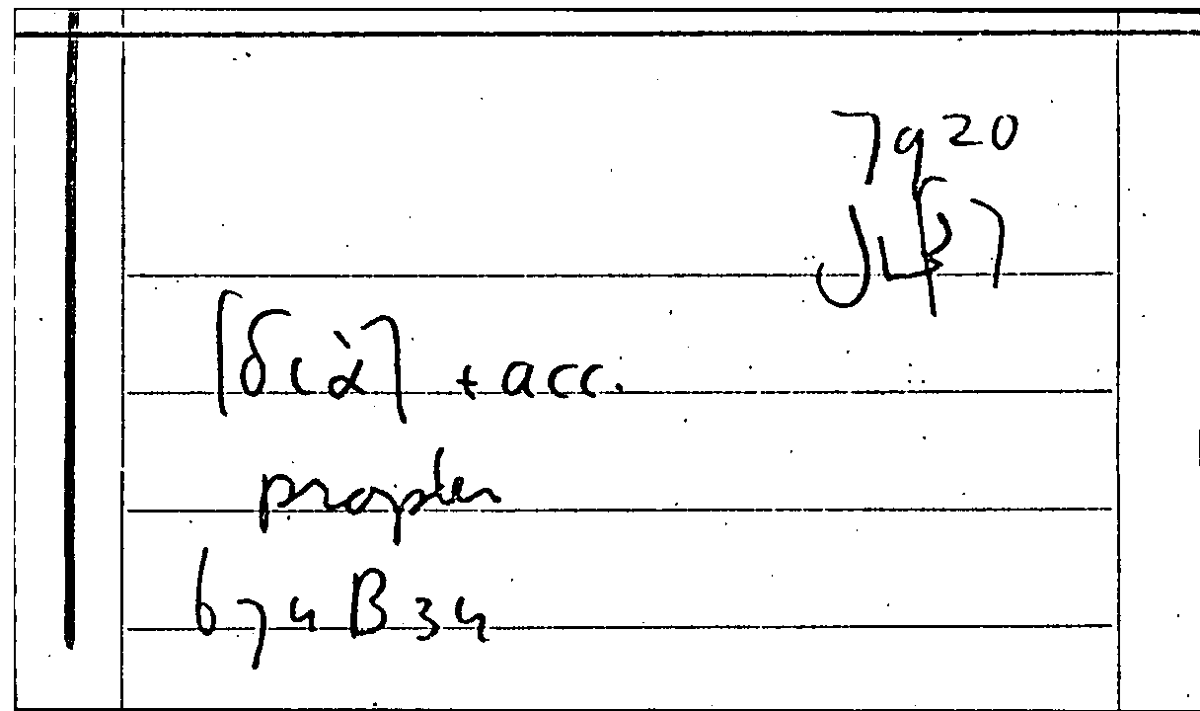 7920
[διὰ] + acc.
propter
674 B 34